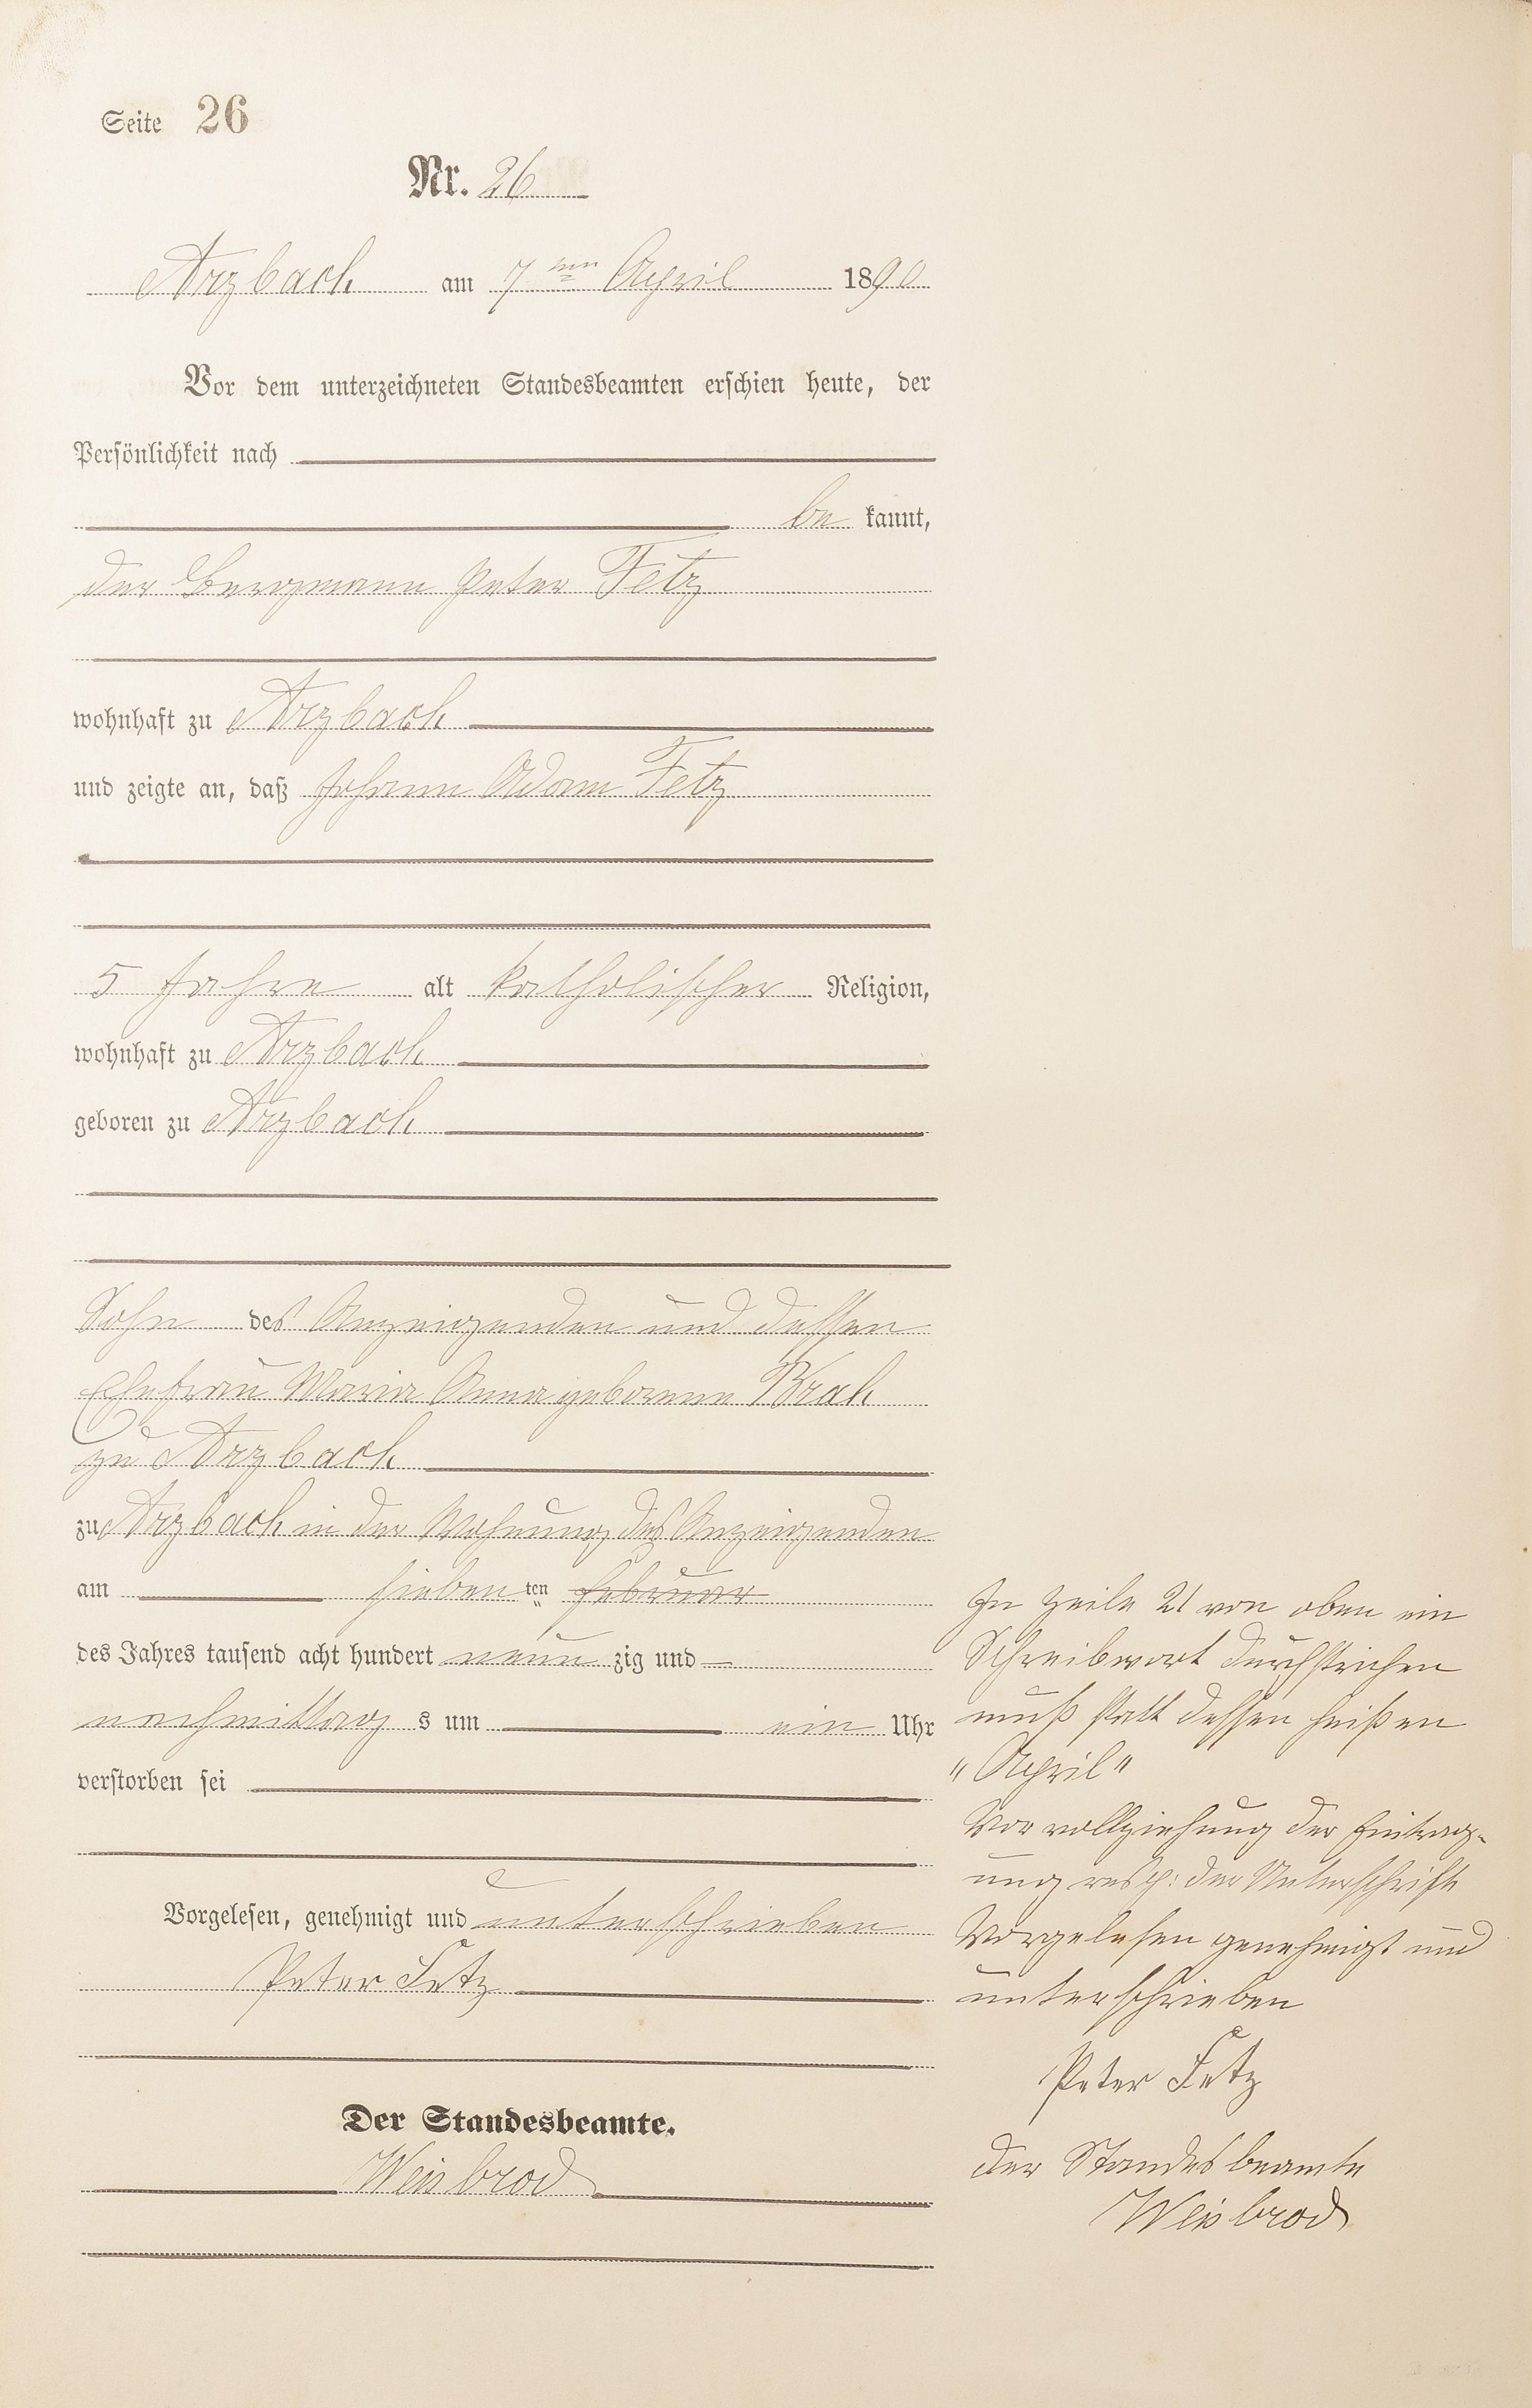 Seite 26
Nr. 26
Arzbach am 7ten April 1890
Vor dem unterzeichneten Standesbeamten erschien heute, der
Persönlichkeit nach
be kannt,
der Bergmann Peter Fetz
wohnhaft zu Arzbach
und zeigte an, daß Johann Adam Fetz
5 Jahre alt katholischer Religion,
wohnhaft zu Arzbach
geboren zu Arzbach
Sohn des Anzeigenden und dessen
Ehefrau Maria Anna geborene Brah
zu Arzbach
zu Arzbach in der Wohnung des Anzeigenden
am sieben ten Februar
des Jahres tausend acht hundert neun zig und
nachmittag s um ein Uhr
verstorben sei
Vorgelesen, genehmigt und unterschrieben
Peter Fetz
Der Standesbeamte.
Weisbrod
In Zeile 21 von oben ein
Schreibwort durchstrichen
muß statt dessen heißen
"April"
Vor vollziehung der Eintrag-
ung resp: der Unterschrift
Vorgelesen genehmigt und
unterschrieben
Peter Fetz
der Standesbeamte
Weisbrod